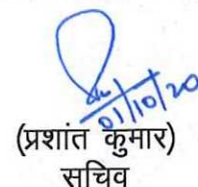 01/10/20
(प्रशांत कुमार)
सचिव